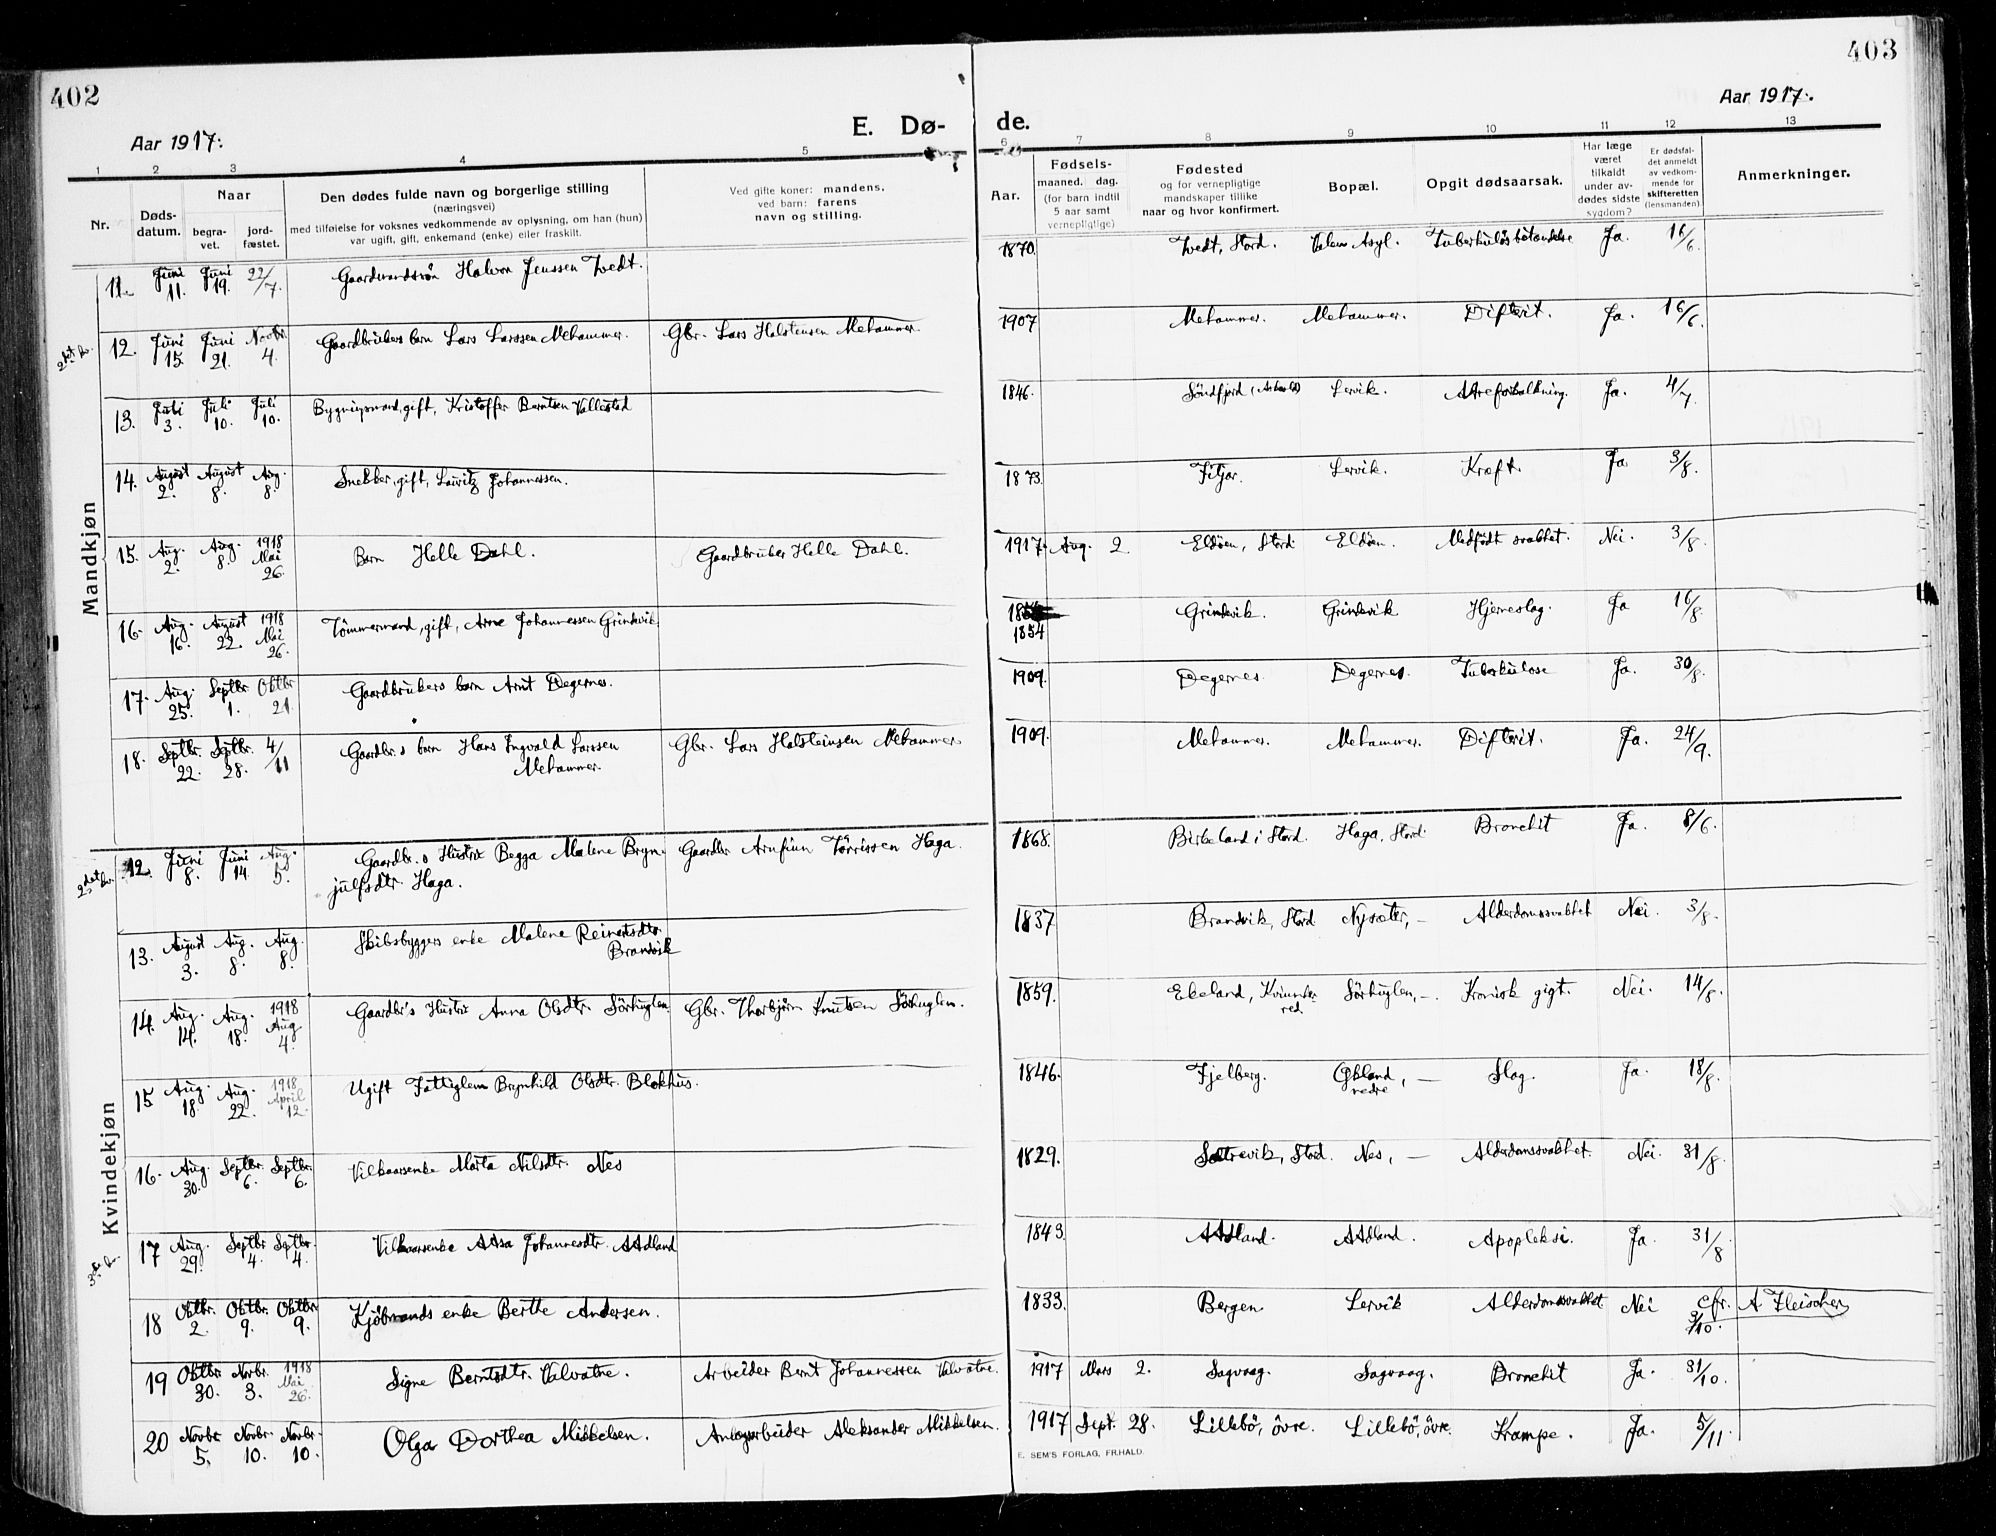 402
403
Aar 1917.
E. Dø-
de.
Aar 1917.
1 2 3 4 5 6 7 8 9 10 11 12 13
Nr.
Døds-
datum.
Naar
begra-
vet.
jord-
fæstet.
Den dødes fulde navn og borgerlige stilling
(næringsvei)
med tilføielse for voksnes vedkommende av oplysning, om han (hun)
var ugift, gift, enkemand (enke) eller fraskilt.
Ved gifte koner: mandens,
ved barn: farens
navn og stilling.
Aar.
Fødsels-
maaned. dag.
(for barn indtil
5 aar samt
vernepligtige)
Fødested
og for vernepligtige
mandskaper tillike
naar og hvor konfirmert.
Bopæl.
Opgit dødsaarsak.
Har læge
været
tilkaldt
under av-
dødes sidste
sygdom?
Er dødsfal-
det anmeldt
av vedkom-
mende for
skifteretten
(lensmanden)
Anmerkninger.
Mandkjøn
11. Juni 11. Juni 19. 22/7. Gaardmandssøn Halvor Jenssen Tvedt. 1870. Tvedt, Stord. Valen Asyl. Ja. 16/6.
2det kv. 12. Juni 15. Juni 21. Novbr. 4. Gaardbrukers barn Lars Larssen Mehammer. Gbr. Lars Halstensen Mehammer. 1907 Mehammer. Mehammer. Difterit. Ja. 16/6.
13. Juli 3. Juli 10. Juli 10. Bygningsmand, gift, Kristoffer Berntsen Vallestad 1846. Söndfjord Lervik. Aareforkalkning. Ja. 4/7.
14. August 2. August 8. Aug. 8. Snekker, gift, Lauritz Johannessen. 1873. Fitjar. Lervik. Kræft. Ja 3/8.
15. Aug. 2. Aug. 8. 1918 Mai 26. Barn Helle Dahl. Gaardbruker Helle Dahl. 1917. Aug. 2. Eldöen, Stord Eldöen. Medfødt svakhet. Nei. 3/8.
16. Aug. 16. August 22. 1918 Mai 26. Tömmermand, gift, Arne Johannessen Grindevik. 1854 Grindevik. Grindevik Hjerneslag. Ja 16/8.
17. Aug. 25. Septbr. 1. Oktbr. 21. Gaardbrukers barn Arnt Degernes. 1909. Degernes. Degernes. Tuberkulose Ja. 30/8.
18. Septbr. 22. Septbr. 28. 4/11 Gaardbr.s barn Hans Ingvald Larssen
Mehammer. Gbr. Lars Halsteinsen Mehammer 1909. Mehammer. Mehammer. Difterit. Ja. 24/9.
Kvindekjøn
2det kv. 12. Juni 8. Juni 14. Aug. 5. Gaardbr.s Hustru Begga Malene Bryn-
julfsdtr. Haga. Gaardbr. Arnfinn Törrissen Haga. 1868. Birkeland i Stord. Haga, Stord. Bronchit Ja. 8/6.
13. August 3. Aug. 8. Aug. 8. Skibsbyggers enke Malene Reinertsdtr.
Brandvik 1837 Brandvik, Stord Nysæter, — Alderdomssvakhet Nei. 3/8.
14. Aug. 14. Aug. 18. 1918 Aug 4. Gaardbr's Hustru Anna Olsdtr. Sörhuglen. Gbr. Thorbjörn Knutsen Sörhuglen. 1859. Ekeland, Kvinnhe-
red Sörhuglen, —. Kronisk gigt. Nei. 14/8.
15 Aug. 18. Aug. 22. 1918 April 12. Ugift Fattiglem Brynhild Olsdtr. Blokhus. 1846. Fjelberg. Økland, —
nedre Slag. Ja. 18/8.
16. Aug. 30. Septbr. 6. Septbr. 6. Vilkaarsenke Marta Nilsdtr. Nes 1829. Sætrevik, Stord. Nes, — Alderdomssvakhet. Nei. 31/8.
3die kv. 17 Aug. 29. Septbr 4. Septbr. 4. Vilkaarsenke Aasa Johannesdtr. Aadland 1843. Aadland. Aadland. Apopleksi. Ja. 31/8
18 Oktbr. 2. Oktbr. 9. Oktbr 9. Kjöbmands enke Berthe Andersen. 1833. Bergen Lervik Alderdomssvakhet. Nei cfr. 3/10. A Fleischer
19 Oktbr 30. Novbr. 3. 1918 Mai 26. Signe Berntsdtr. Valvatne. Arbeider Bernt Johannessen Valvatne. 1917 Mars 2. Sagvaag. Sagvaag. Bronchit Ja. 31/10.
20 Novbr 5. Novbr. 10. Novbr. 10. Olga Dorthea Mikkelsen. Anlægsarbeider Aleksander Mikkelsen. 1917 Sept. 28. Lillebö, övre. Lillebö, övre. Krampe. Ja. 5/11.
E. SEM'S FORLAG, FR.HALD.